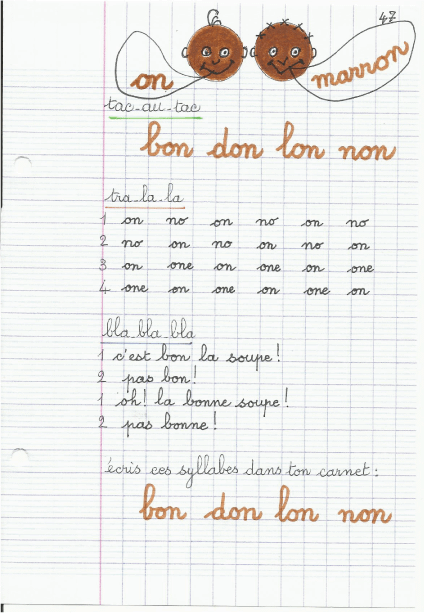 47
on marron
tac-au-tac
bon don lon non
tra-la-la
1 on no on no on no
2 no on no on no on
3 on one on one on one
4 one on one on one on
bla bla bla
1 c'est bon la soupe!
2 pas bon!
1 oh! la bonne soupe!
2 pas bonne!
écris ces syllabes dans ton carnet:
bon don lon non